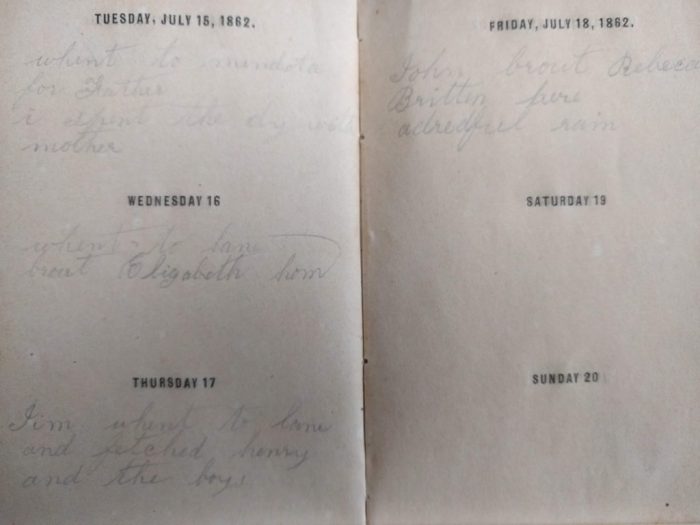 TUESDAY, JULY 15, 1862.
whent to mendota
for Father
i spent the dy with
mother
WEDNESDAY 16
whent to lane
brout Elizabeth hom
THURSDAY 17
Jim whent to lane
and fetched henry
and the boys
FRIDAY, JULY 18, 1862.
John brout Rebecca
Britten
adredful rain
SATURDAY 19
SUNDAY 20